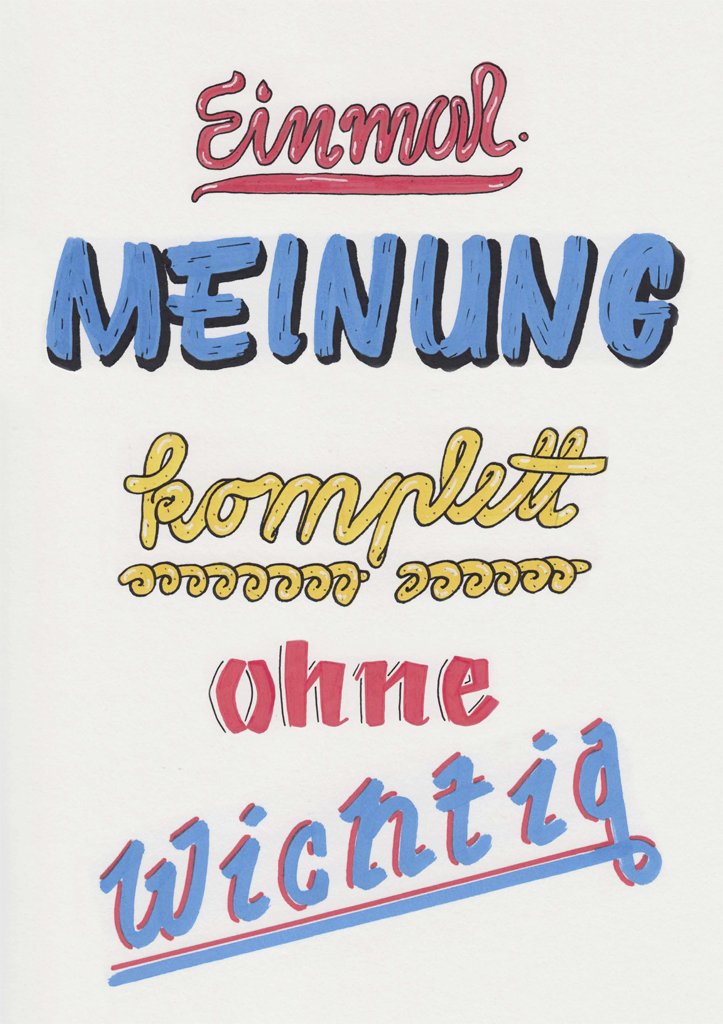 Einmal.
MEINUNG
komplett
ohne
Wichtig